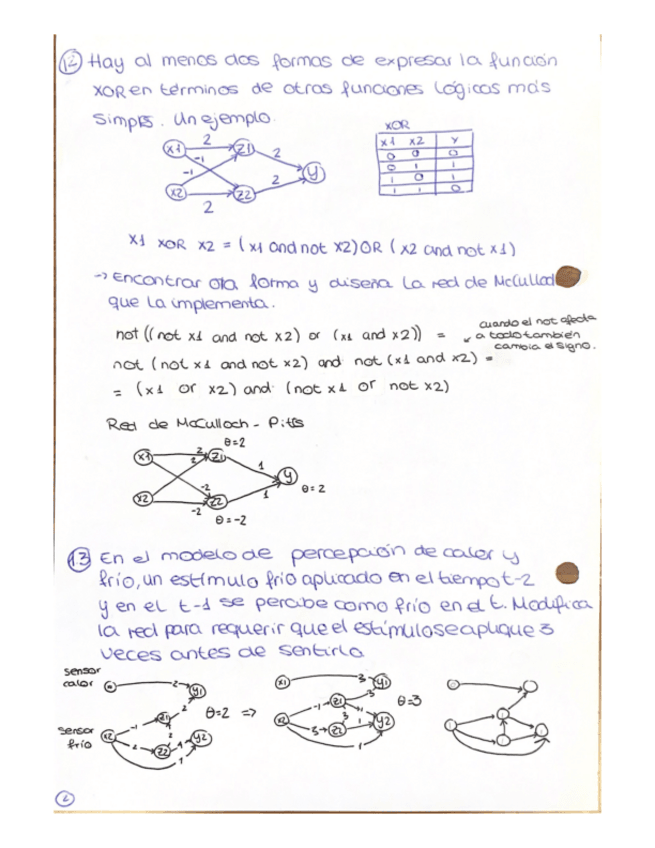 12 Hay al menos dos formas de expresar la función
XOR en términos de otras funciones lógicas más
simples. Un ejemplo.
XOR
x1 x2 y
0 0 0
0 1 1
1 0 1
1 1 0
x1 2 z1 2
-1
-1 y
x2 z2 2
2
x1 XOR x2 = (x1 and not x2) OR (x2 and not x1)
→ Encontrar otra forma y diseña la red de McCulloch
que la implementa.
not ((not x1 and not x2) or (x1 and x2)) =
cuando el not afecta
a todo también
cambia el signo.
not (not x1 and not x2) and not (x1 and x2) =
= (x1 or x2) and (not x1 or not x2)
Red de McCulloch - Pitts
θ=2
x1 2 z1 1
2 y θ=2
-2
x2 -2 z2 1
θ=-2
13 En el modelo de percepción de calor y
frío, un estímulo frío aplicado en el tiempo t-2
y en el t-1 se percibe como frío en el t. Modifica
la red para requerir que el estímulo se aplique 3
veces antes de sentirlo
sensor
calor 2 y1
2
sensor
frío x2 -1 z1 θ=2 =>
2 z2 1 y2
2
1
x1 3 y1
3
x2 -1 z1 θ=3
3 z2 1 y2
3
1
2